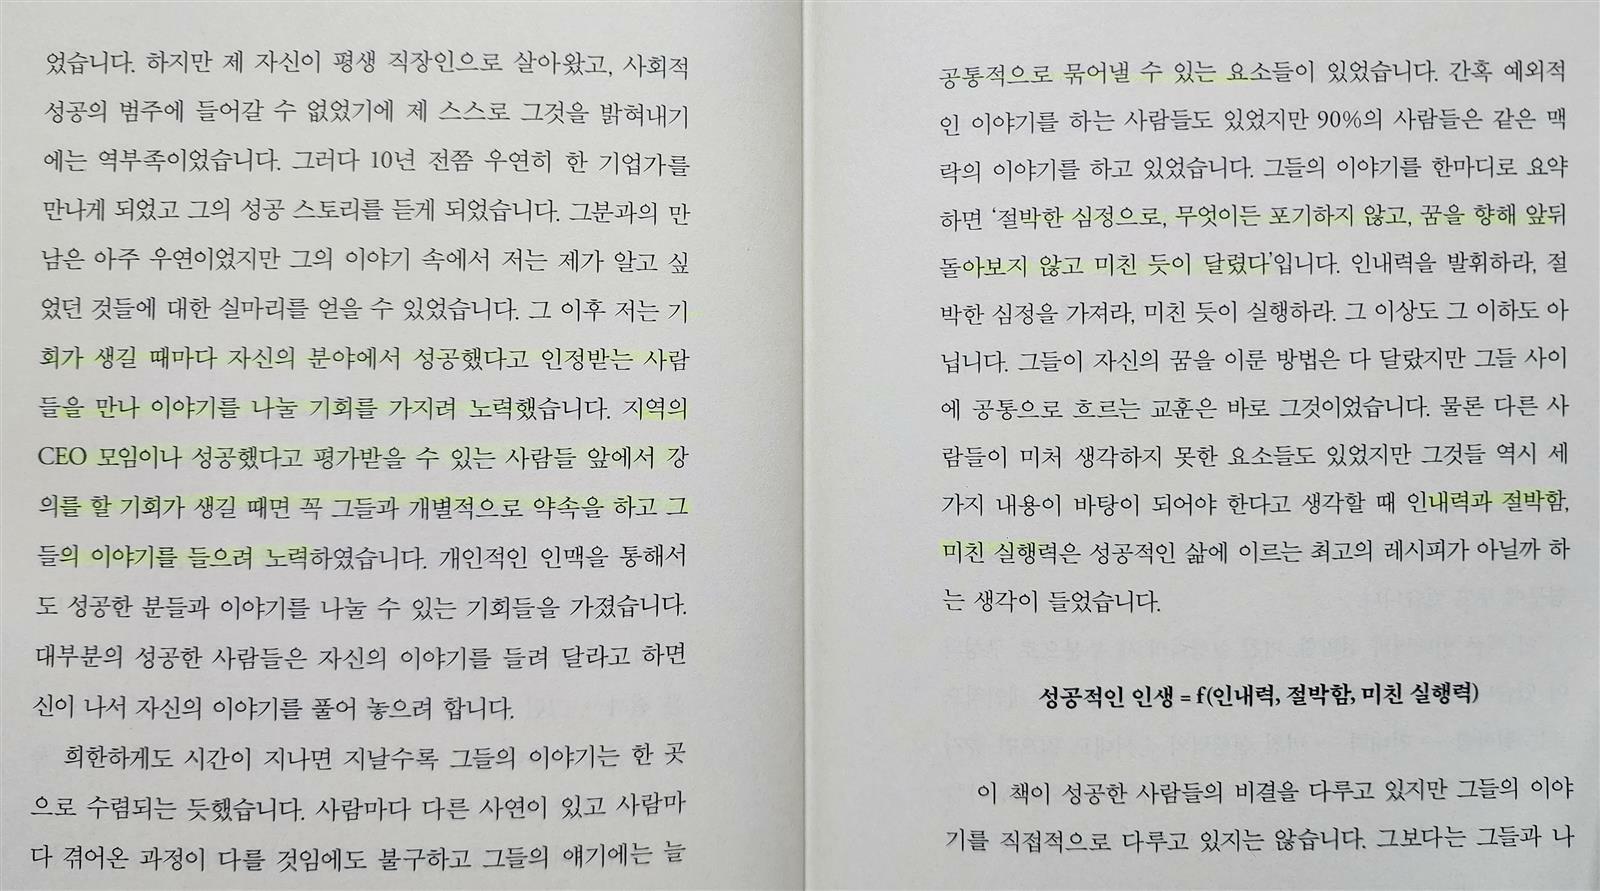 었습니다. 하지만 제 자신이 평생 직장인으로 살아왔고, 사회적
성공의 범주에 들어갈 수 없었기에 제 스스로 그것을 밝혀내기
에는 역부족이었습니다. 그러다 10년 전쯤 우연히 한 기업가를
만나게 되었고 그의 성공 스토리를 듣게 되었습니다. 그분과의 만
남은 아주 우연이었지만 그의 이야기 속에서 저는 제가 알고 싶
었던 것들에 대한 실마리를 얻을 수 있었습니다. 그 이후 저는 기
회가 생길 때마다 자신의 분야에서 성공했다고 인정받는 사람
들을 만나 이야기를 나눌 기회를 가지려 노력했습니다. 지역의
CEO 모임이나 성공했다고 평가받을 수 있는 사람들 앞에서 강
의를 할 기회가 생길 때면 꼭 그들과 개별적으로 약속을 하고 그
들의 이야기를 들으려 노력하였습니다. 개인적인 인맥을 통해서
도 성공한 분들과 이야기를 나눌 수 있는 기회들을 가졌습니다.
대부분의 성공한 사람들은 자신의 이야기를 들려 달라고 하면
신이 나서 자신의 이야기를 풀어 놓으려 합니다.
희한하게도 시간이 지나면 지날수록 그들의 이야기는 한 곳
으로 수렴되는 듯했습니다. 사람마다 다른 사연이 있고 사람마
다 겪어온 과정이 다를 것임에도 불구하고 그들의 얘기에는 늘
공통적으로 묶어낼 수 있는 요소들이 있었습니다. 간혹 예외적
인 이야기를 하는 사람들도 있었지만 90%의 사람들은 같은 맥
락의 이야기를 하고 있었습니다. 그들의 이야기를 한마디로 요약
하면 ‘절박한 심정으로, 무엇이든 포기하지 않고, 꿈을 향해 앞뒤
돌아보지 않고 미친 듯이 달렸다’입니다. 인내력을 발휘하라, 절
박한 심정을 가져라, 미친 듯이 실행하라. 그 이상도 그 이하도 아
닙니다. 그들이 자신의 꿈을 이룬 방법은 다 달랐지만 그들 사이
에 공통으로 흐르는 교훈은 바로 그것이었습니다. 물론 다른 사
람들이 미처 생각하지 못한 요소들도 있었지만 그것들 역시 세
가지 내용이 바탕이 되어야 한다고 생각할 때 인내력과 절박함,
미친 실행력은 성공적인 삶에 이르는 최고의 레시피가 아닐까 하
는 생각이 들었습니다.
성공적인 인생 = f(인내력, 절박함, 미친 실행력)
이 책이 성공한 사람들의 비결을 다루고 있지만 그들의 이야
기를 직접적으로 다루고 있지는 않습니다. 그보다는 그들과 나